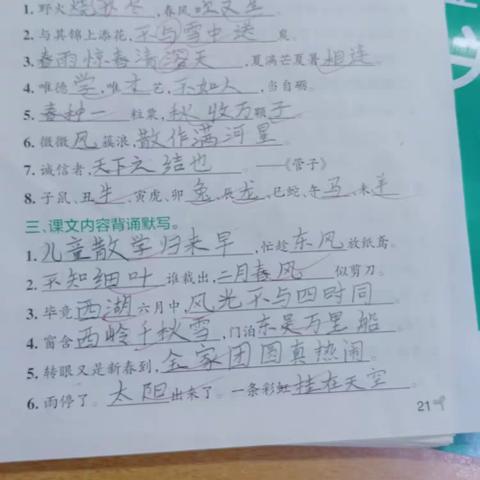 1. 野火烧不尽，春风吹又生。
2. 与其锦上添花，不与雪中送炭。
3. 春雨惊春清溪天，夏满芒夏暑相连。
4. 唯德学，唯才艺，不如人，当自砺。
5. 春种一粒粟，秋收万颗子。
6. 微微风簇浪，散作满河星。
7. 诚信者，天下之结也。——《管子》
8. 子鼠、丑牛、寅虎、卯兔、辰龙、巳蛇、午马、未羊
三、课文内容背诵默写。
1. 儿童散学归来早，忙趁东风放纸鸢。
2. 不知细叶谁裁出，二月春风似剪刀。
3. 毕竟西湖六月中，风光不与四时同。
4. 窗含西岭千秋雪，门泊东吴万里船。
5. 转眼又是新春到，全家团圆真热闹。
6. 雨停了。太阳出来了。一条彩虹挂在天空。
21